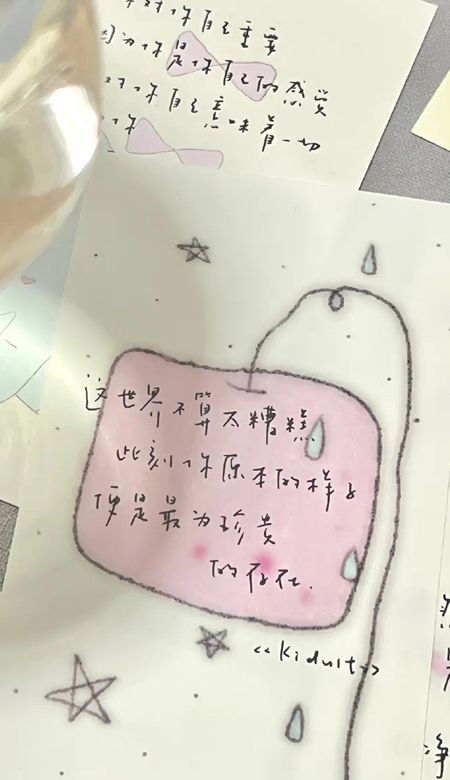 对你自己重要
因为你是你自己的感觉
对你自己意味着一切
你
这世界不算太糟糕
此刻你原本的样子
便是最为珍贵
的存在.
<<Kidult>>
净